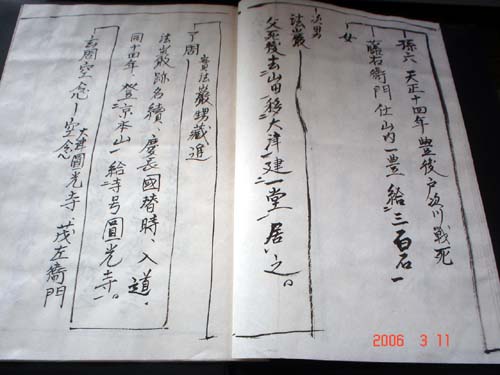 孫六 天正十四年豊後戸次川戦死
女
藤右衛門仕山内一豊給三百石
次男
法巌
父死後去山田移大津建一堂居之。
了周
実法巌甥蔵進
法巌跡名続、慶長國替時、入道、
同十四年、登京本山給寺号圓光寺。
玄周空念 空念
大津圓光寺、茂左衛門
2006 3 11